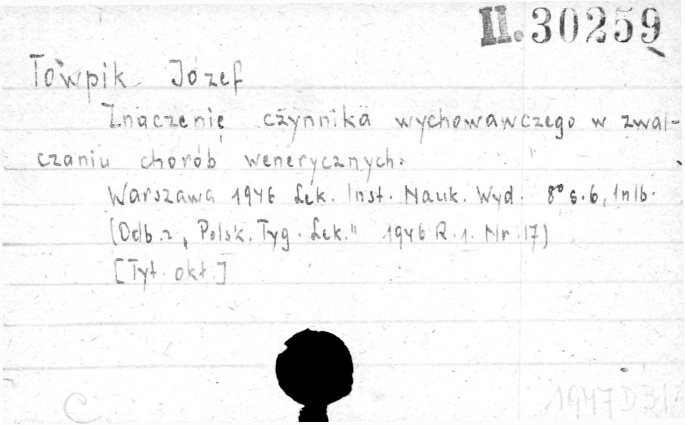 II. 30259
Towpik Józef
Znaczenie czynnika wychowawczego w zwal-
czaniu chorób wenerycznych.
Warszawa 1946 Lek. Inst. Nauk. Wyd. 8° s. 6, 1nlb.
(Odb. z „Polsk. Tyg. Lek." 1946 R. 1. Nr. 17)
[Tyt. okł.]
C
1947 D 31.